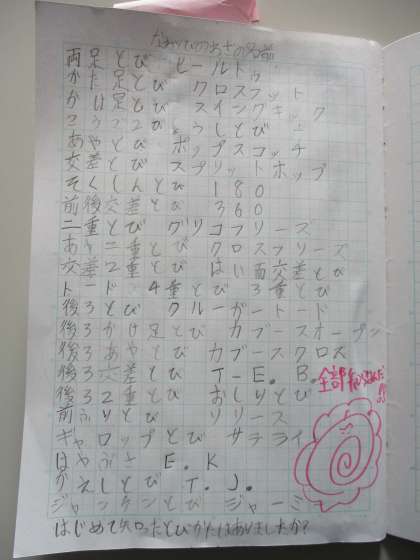 なわとびのわざの名前
両足とび ヒールトゥ
かた足とび クロスフット
かけ足とび スイングキック
こうさこひょうしとび
あやとび ホップスコッチ
交差とび スプリットホップ
そくしんとび 180
前後交差とび 360
二重とび グリコフリーズ
あや二重とび クロスフリーズ
交差2重とび はい面交差とび
トード 4重とび 3重とび
後ろとび クルーガートード
後ろかけ足とび カブースオープン
後ろあやとび カブースクロス
後ろ交差とび T-E.B.
後ろ2重とび おしりとび
前ふりとび リリース
ギャロップとび サテライ
はやぶさ E.K
かえしとび T.J.
ジャンケンとび ジャーミー
はじめて知ったとびかたはありましたか?
全部